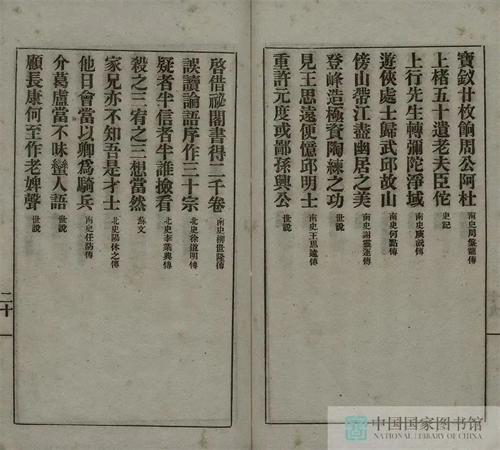 寶釵廿枚餉周公阿杜 南史周盤龍傳
上楮五十遺老夫臣佗 史記
上行先生轉彌陀淨域 南史庾詵傳
遊俠處士歸武邱故山 南史何點傳
傍山帶江盡幽居之美 南史謝靈運傳
登峰造極資陶練之功 世說
見王思遠便憶邱明士 南史王思遠傳
重許元度或鄙孫興公 世說
啓借祕閣書得二千卷 南史柳世隆傳
誤讀論語序作三十宗 北史徐遵明傳
疑者半信者半誰撿看 北史李業興傳
殺之三宥之三想當然 蘇文
家兄亦不知吾是才士 北史陽休之傳
他日會當以卿為騎兵 南史任昉傳
介葛盧當不味蠻人語 世說
顧長康何至作老婢聲 世說
二十
中国国家图书馆
NATIONAL LIBRARY OF CHINA